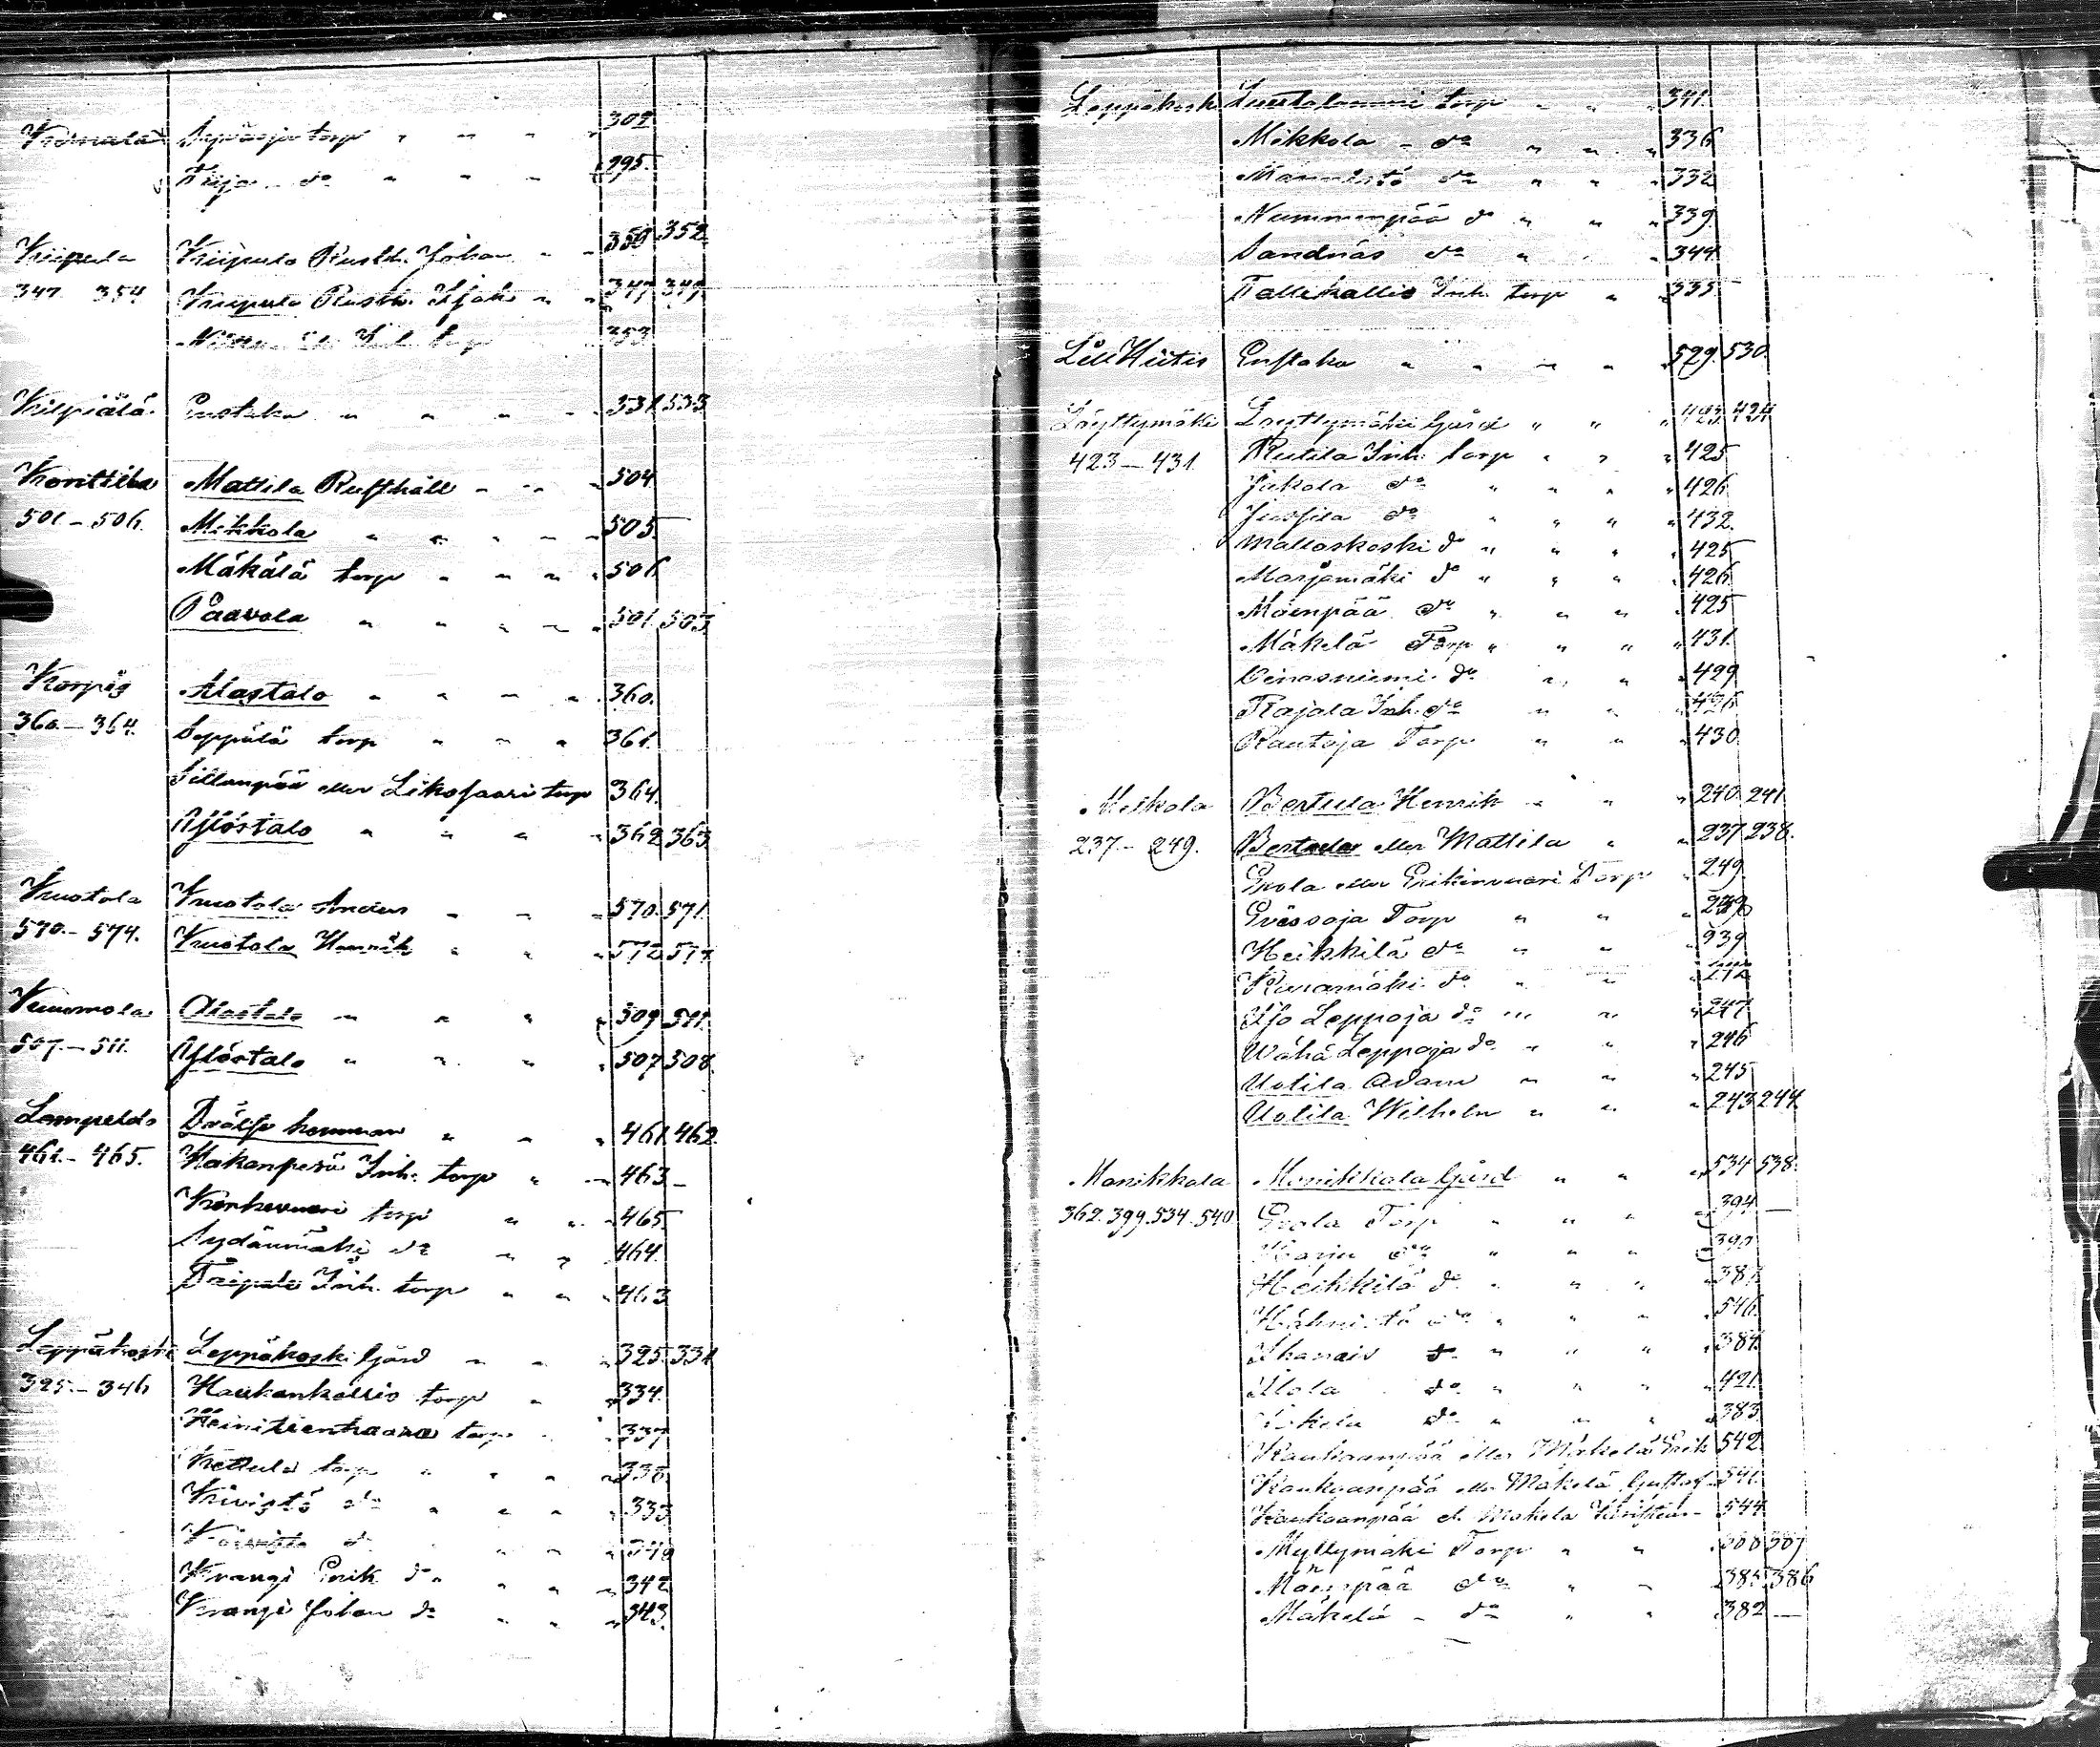 Sepänoja torp " " " 302
Tirja do " " " 295.
Kiipula Kiipula Rusth. Johan " " 350. 352.
347 354 Kiipula Rusth. Isak " " 347 349.
Inh. torp 353
Kilpiälä Enstaka " " " 531. 533
Konttila Mattila Rusthåll " " " 504
501 - 506. Mikkola " " " " 505
Mäkälä torp " " " " 506
Paavola " " " " 501. 503.
Korpis Alastalo " " " " 360.
360 - 364. Seppälä torp " " " 361.
Sillanpää eller Likosaari torp 364.
Ylöstalo " " " " 362. 363.
Kuotola Kuotola Anders " " " 570. 571.
570 - 574. Kuotola Henrik " " " 572 574.
Kuumola Alastalo " " " " 509. 511.
507. - 511. Ylöstalo " " " " 507 508.
Lempelto Frälse hemman " " " 461. 462.
461 - 465. Hakanpesä Inh. torp " " 463 -
Korkevuori torp " " " 465
Sydänmäki do " " 464.
Taipale Inh. torp " " " 463
Leppäkoski Leppäkoski Gård " " " 325. 331
325 - 346 Haukankallio torp " " 334.
Heinitienhaara torp " " 337
Kettula torp " " " " 338.
Kivistö do " " " " 333
do " " " "
Krangi Erik do " " " 342
Krangi Johan do " " " 343.
Leppäkoski Luutalammi torp " " " 341.
Mikkola - do " " " 336
Männistö do " " " 332
Nummenpää do " " " 339.
Sandnäs do " " " 344
Tallikallio Inh. torp " " 335.
Lill Hiitis Enstaka " " " " 529. 530.
Löyttymäki Löyttymäki Gård " " " 423. 424
423 - 431. Rutila Inh. torp " " " 425
Jukola do " " " " 426
Juofila do " " " " 432.
Mallaskoski do " " " 425
Marjamäki do " " " 426
Mäenpää do " " " 425
Mäkelä Torp " " " " 431.
Oinasniemi do " " 429
Rajala Inh. do " " " 426
Rautoja Torp " " " 430
Meikola Bertula Henrik " " " 240. 241
237 - 249. Bertula eller Mattila " " 237 238.
Erola eller Erikinvuori Torp " 249.
Torp " " "
Heikkilä do " " " 239
do " " "
Iso Leppoja do " " " 247
Wähä Leppoja do " " " 246
Uotila Adam " " " 245
Uotila Wilhelm " " " 243 244
Monikkala Monikkala Gård " " " 534 538.
362. 399. 534. 540 Erola Torp " " " 394 -
Harju do " " " 390
Heikkilä do " " " 387
Hähnistö do " " " " 546.
Ihanais do " " " " 384.
Ilola do " " " " 421.
do " " " " 383
Kaukaanpää eller Mäkelä Erik 542
Kaukaanpää eller Mäkelä Gustaf 541.
Kaukaanpää el. Mäkelä - 544
Myllymäki Torp " "
Mäenpää do " " 385. 386
Mäkelä - do " " 382 -